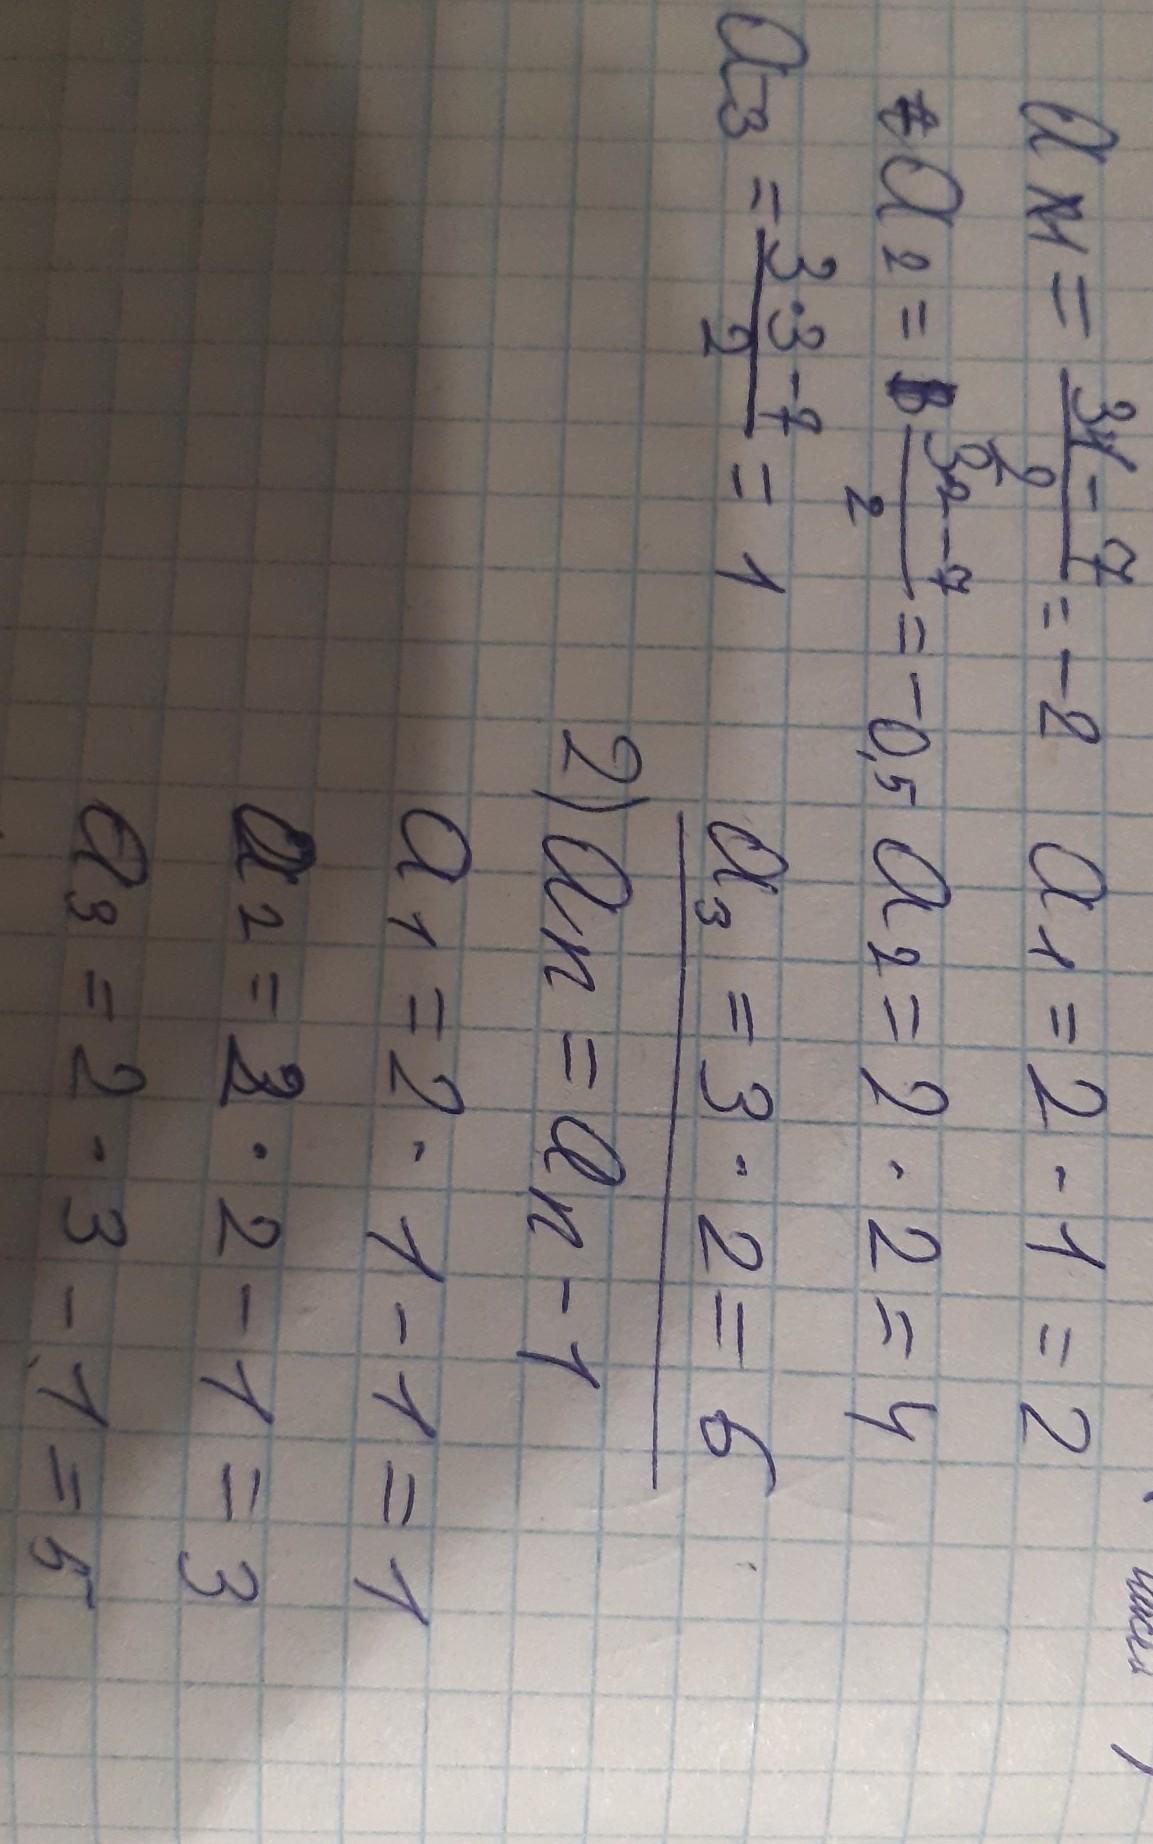 a1 = 3·1-7/2 = -2 a1 = 2·1 = 2
a2 = 3·2-7/2 = -0,5 a2 = 2·2 = 4
a3 = 3·3-7/2 = 1 a3 = 3·2 = 6
2) an = an-1
a1 = 2·1-1 = 1
a2 = 2·2-1 = 3
a3 = 2·3-1 = 5